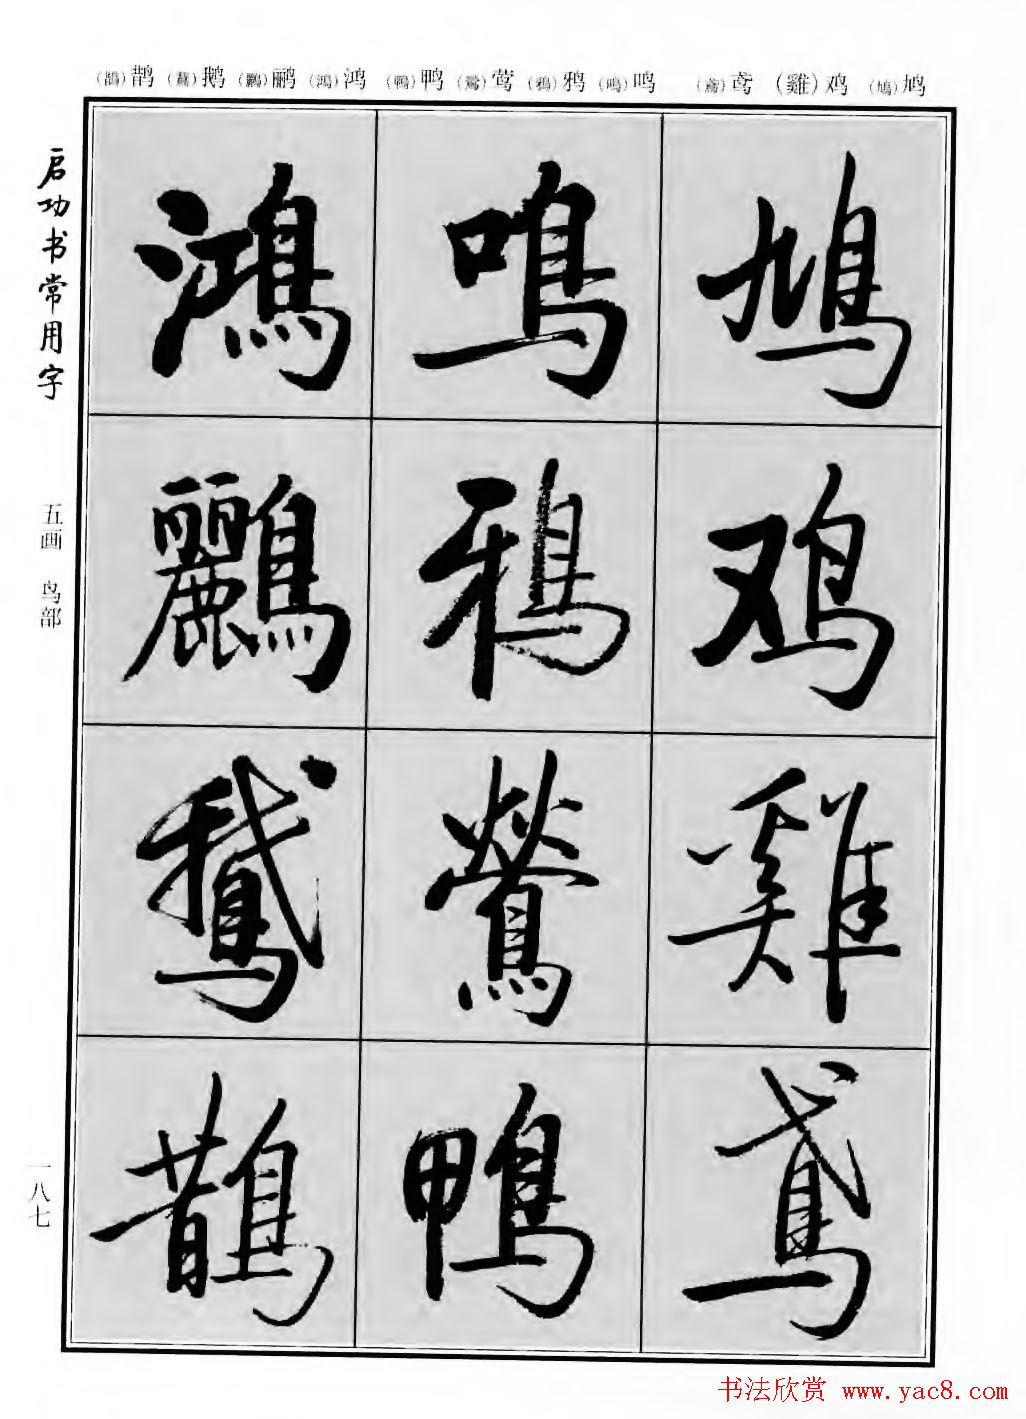 (鵲)鹊 (鵞)鹅 (鸝)鹂 (鴻)鸿 (鴨)鸭 (鶯)莺 (鴉)鸦 (鳴)鸣 (鳶)鸢 (雞)鸡 (鳩)鸠
启功书常用字
五画 鸟部
一八七
鳩
鸡
雞
鳶
鳴
鴉
鶯
鴨
鴻
鸝
鵞
鵲
书法欣赏 www.yac8.com